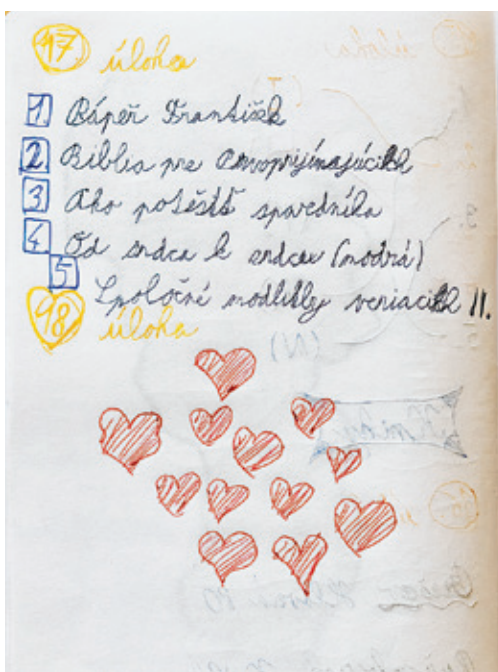 17 úloha
1 Pápež František
2 Biblia pre Prvoprijímajúcich
3 Ako potešiť spovedníka
4 Od srdca k srdcu (modrá)
5 Spoločné modlitby veriacich II.
18 úloha